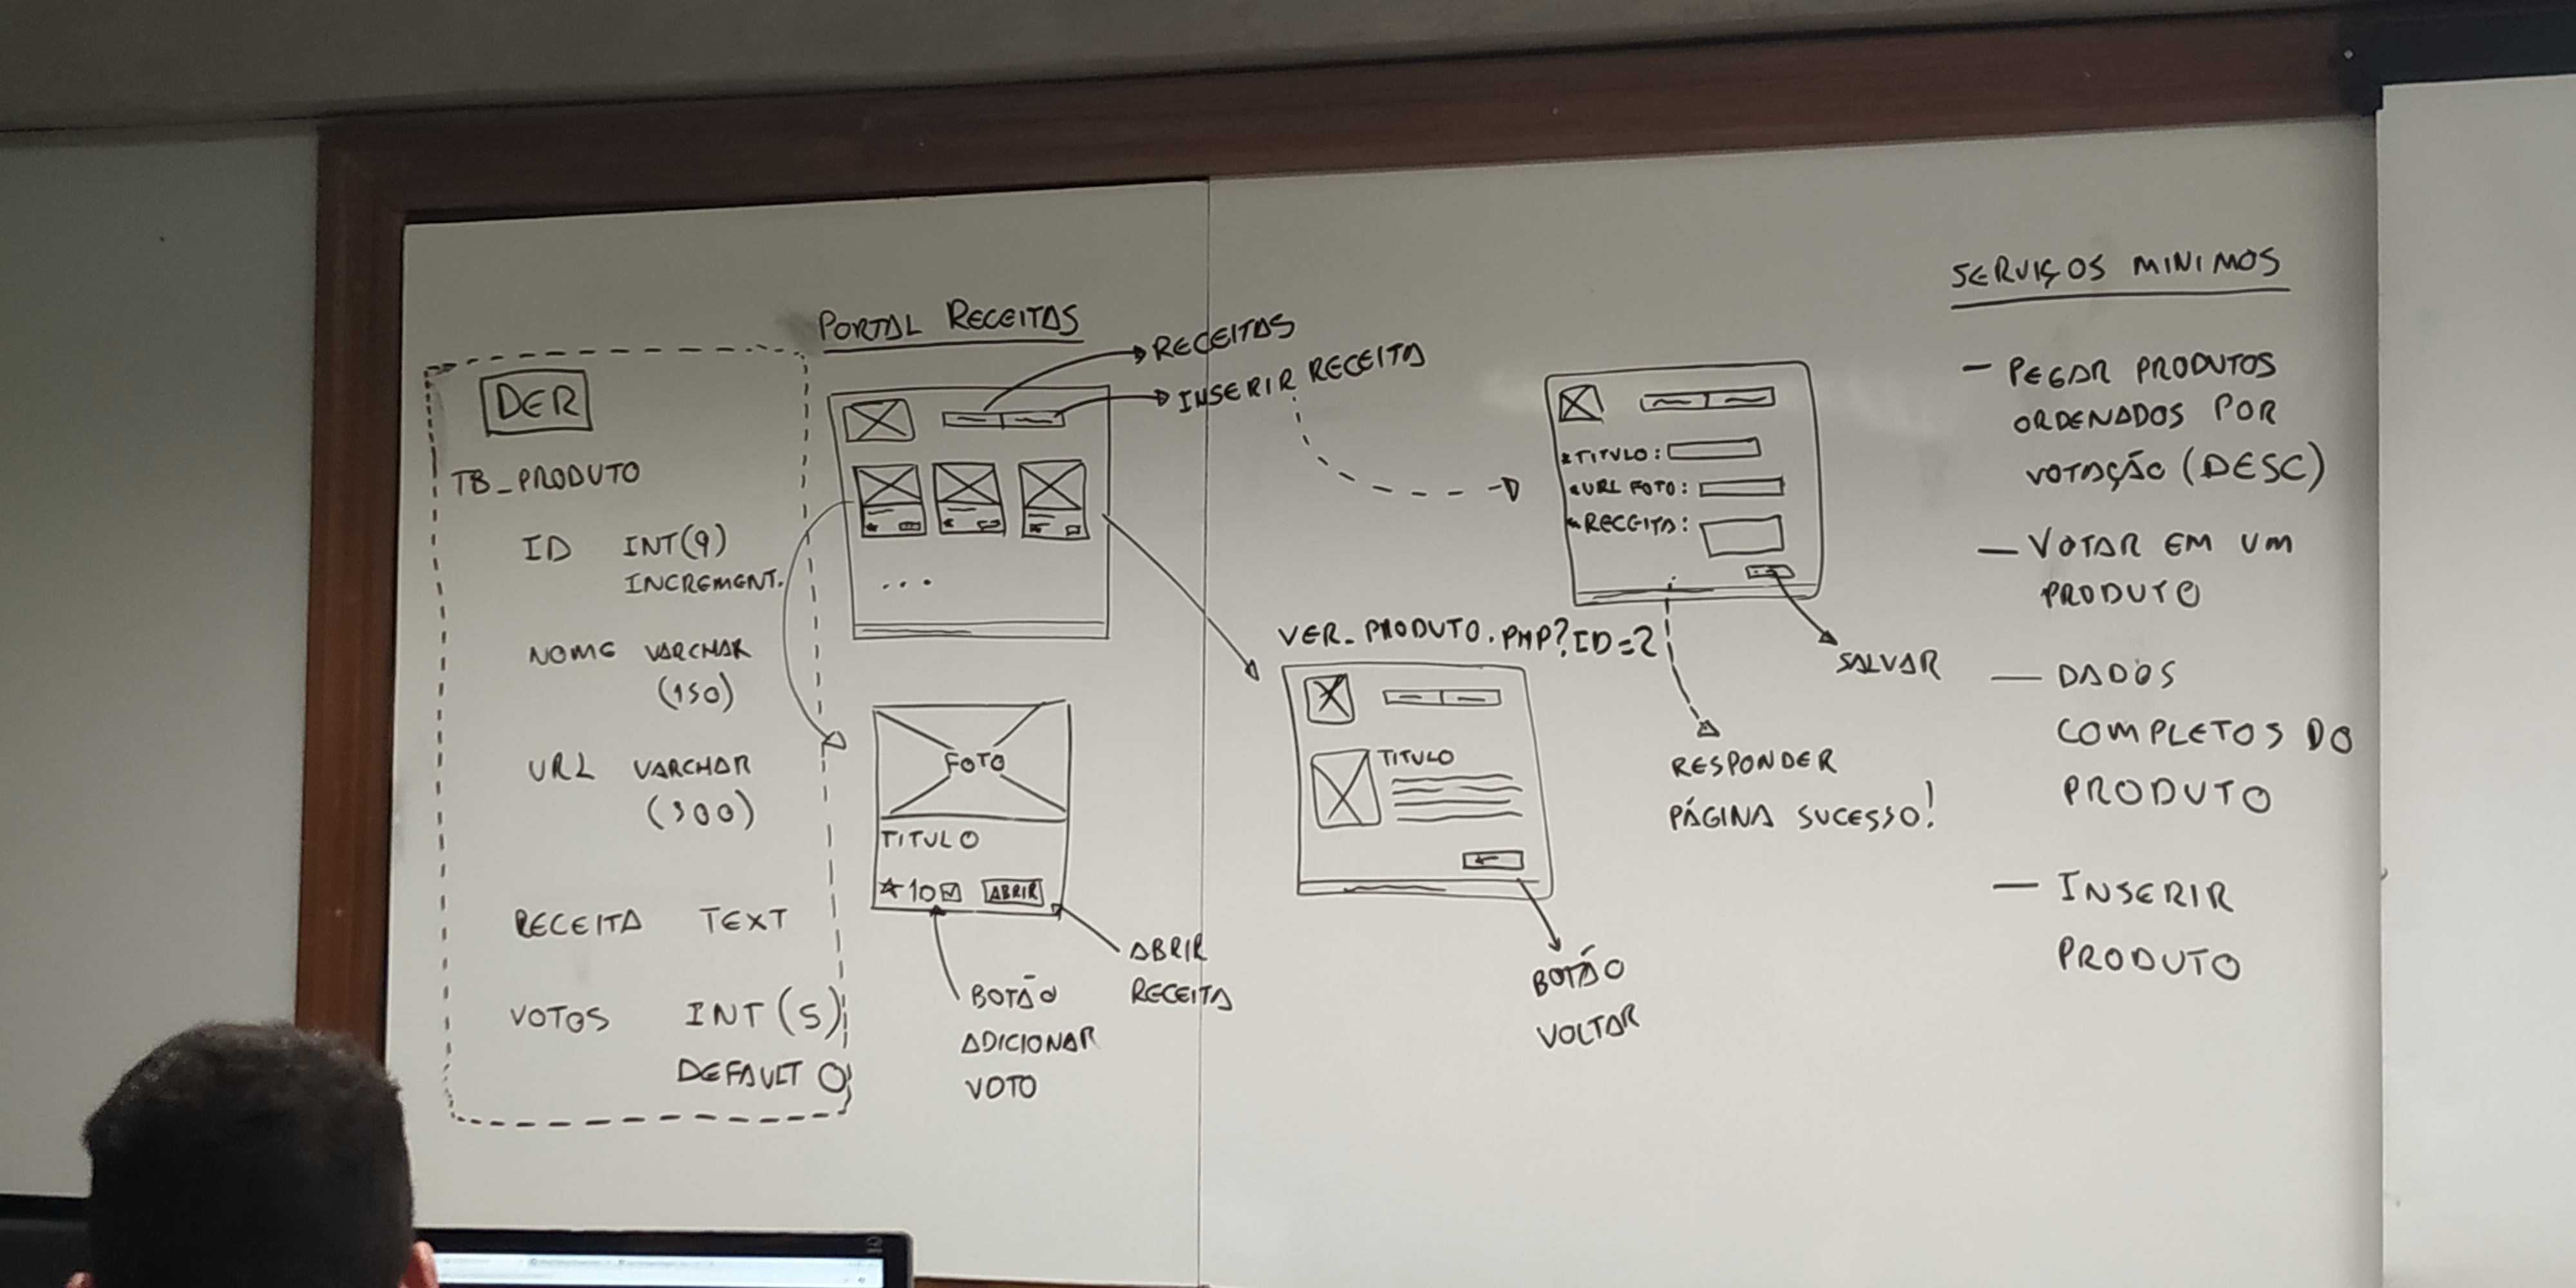 PORTAL RECEITAS
DER
TB_PRODUTO
ID INT(9)
INCREMENT.
NOME VARCHAR
(150)
URL VARCHAR
(300)
RECEITA TEXT
VOTOS INT(5)
DEFAULT 0
RECEITAS
INSERIR RECEITA
...
FOTO
TITULO
10 ABRIR
BOTÃO
ADICIONAR
VOTO
ABRIR
RECEITA
VER_PRODUTO.PHP?ID=2
TITULO
BOTÃO
VOLTAR
*TITULO:
*URL FOTO:
*RECEITA:
SALVAR
RESPONDER
PÁGINA SUCESSO!
SERVIÇOS MINIMOS
- PEGAR PRODUTOS
ORDENADOS POR
VOTAÇÃO (DESC)
- VOTAR EM UM
PRODUTO
- DADOS
COMPLETOS DO
PRODUTO
- INSERIR
PRODUTO